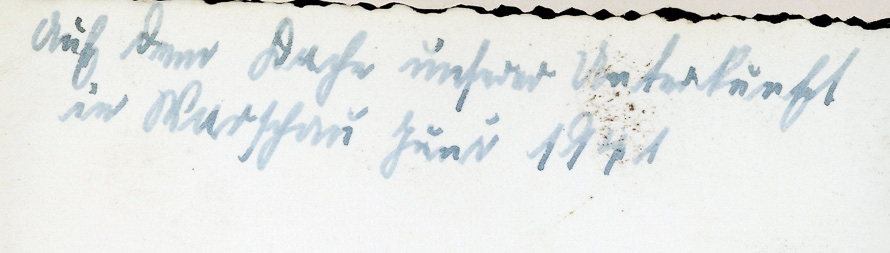 Auf dem Dache unserer Unterkunft
in Warschau Juni 1941